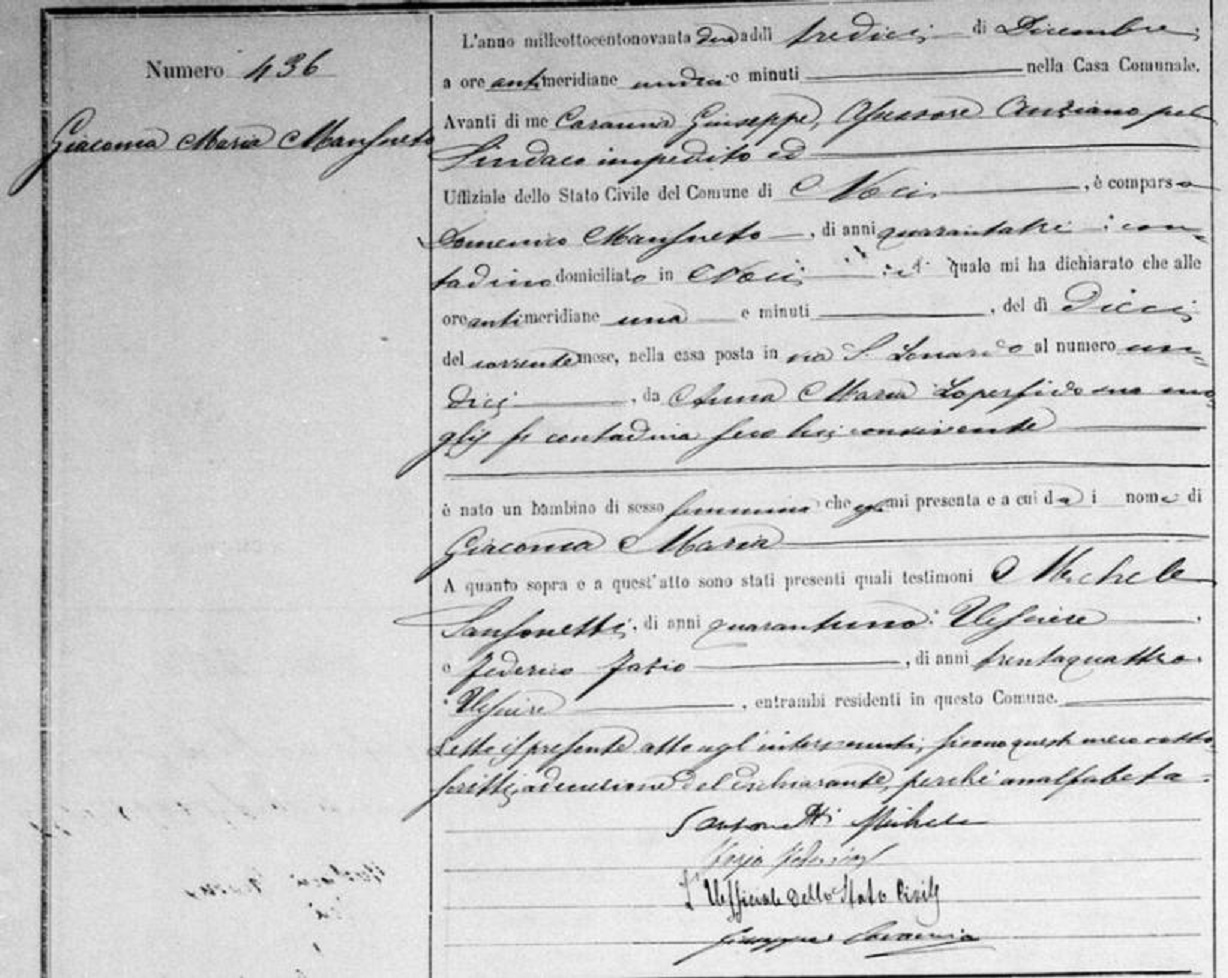 Numero 436
Giacoma Maria Mansueto
L'anno milleottocentonovanta due addì tredici di Dicembre,
a ore antimeridiane undici e minuti nella Casa Comunale.
Avanti di me Giuseppe, Assessore Anziano pel
Sindaco impedito ed
Uffiziale dello Stato Civile del Comune di Noci, è comparso
Domenico Mansueto, di anni quarantatre con-
tadino domiciliato in Noci quale mi ha dichiarato che alle
ore antimeridiane una e minuti, del dì Dieci
del corrente mese, nella casa posta in via S. Leonardo al numero un-
dici, da Anna Maria Loperfido sua mo
glie contadina seco lui convivente
è nato un bambino di sesso femmineo che mi presenta e a cui dà i nome di
Giacoma Maria
A quanto sopra e a quest'atto sono stati presenti quali testimoni Michele
Sansonetti, di anni quarantuno Usciere
e Federico Fasio, di anni trentaquattro
Usciere, entrambi residenti in questo Comune.
Letto il presente atto agl'intervenuti, questi meco sotto
scritti, ad eccezione del dichiarante, perchè analfabeta.
Sansonetti Michele
L'Uffiziale dello Stato Civile
Giuseppe